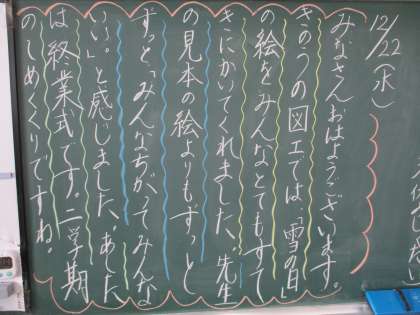 12/22(水)
みなさんおはようございます。
きのうの図工では「雪の日」
の絵をみんなとてもすて
きにかいてくれました。先生
の見本の絵よりもずっと
ずっと「みんなちがってみんな
いい」と感じました。あした
は終業式です。二学期
のしめくくりですね。